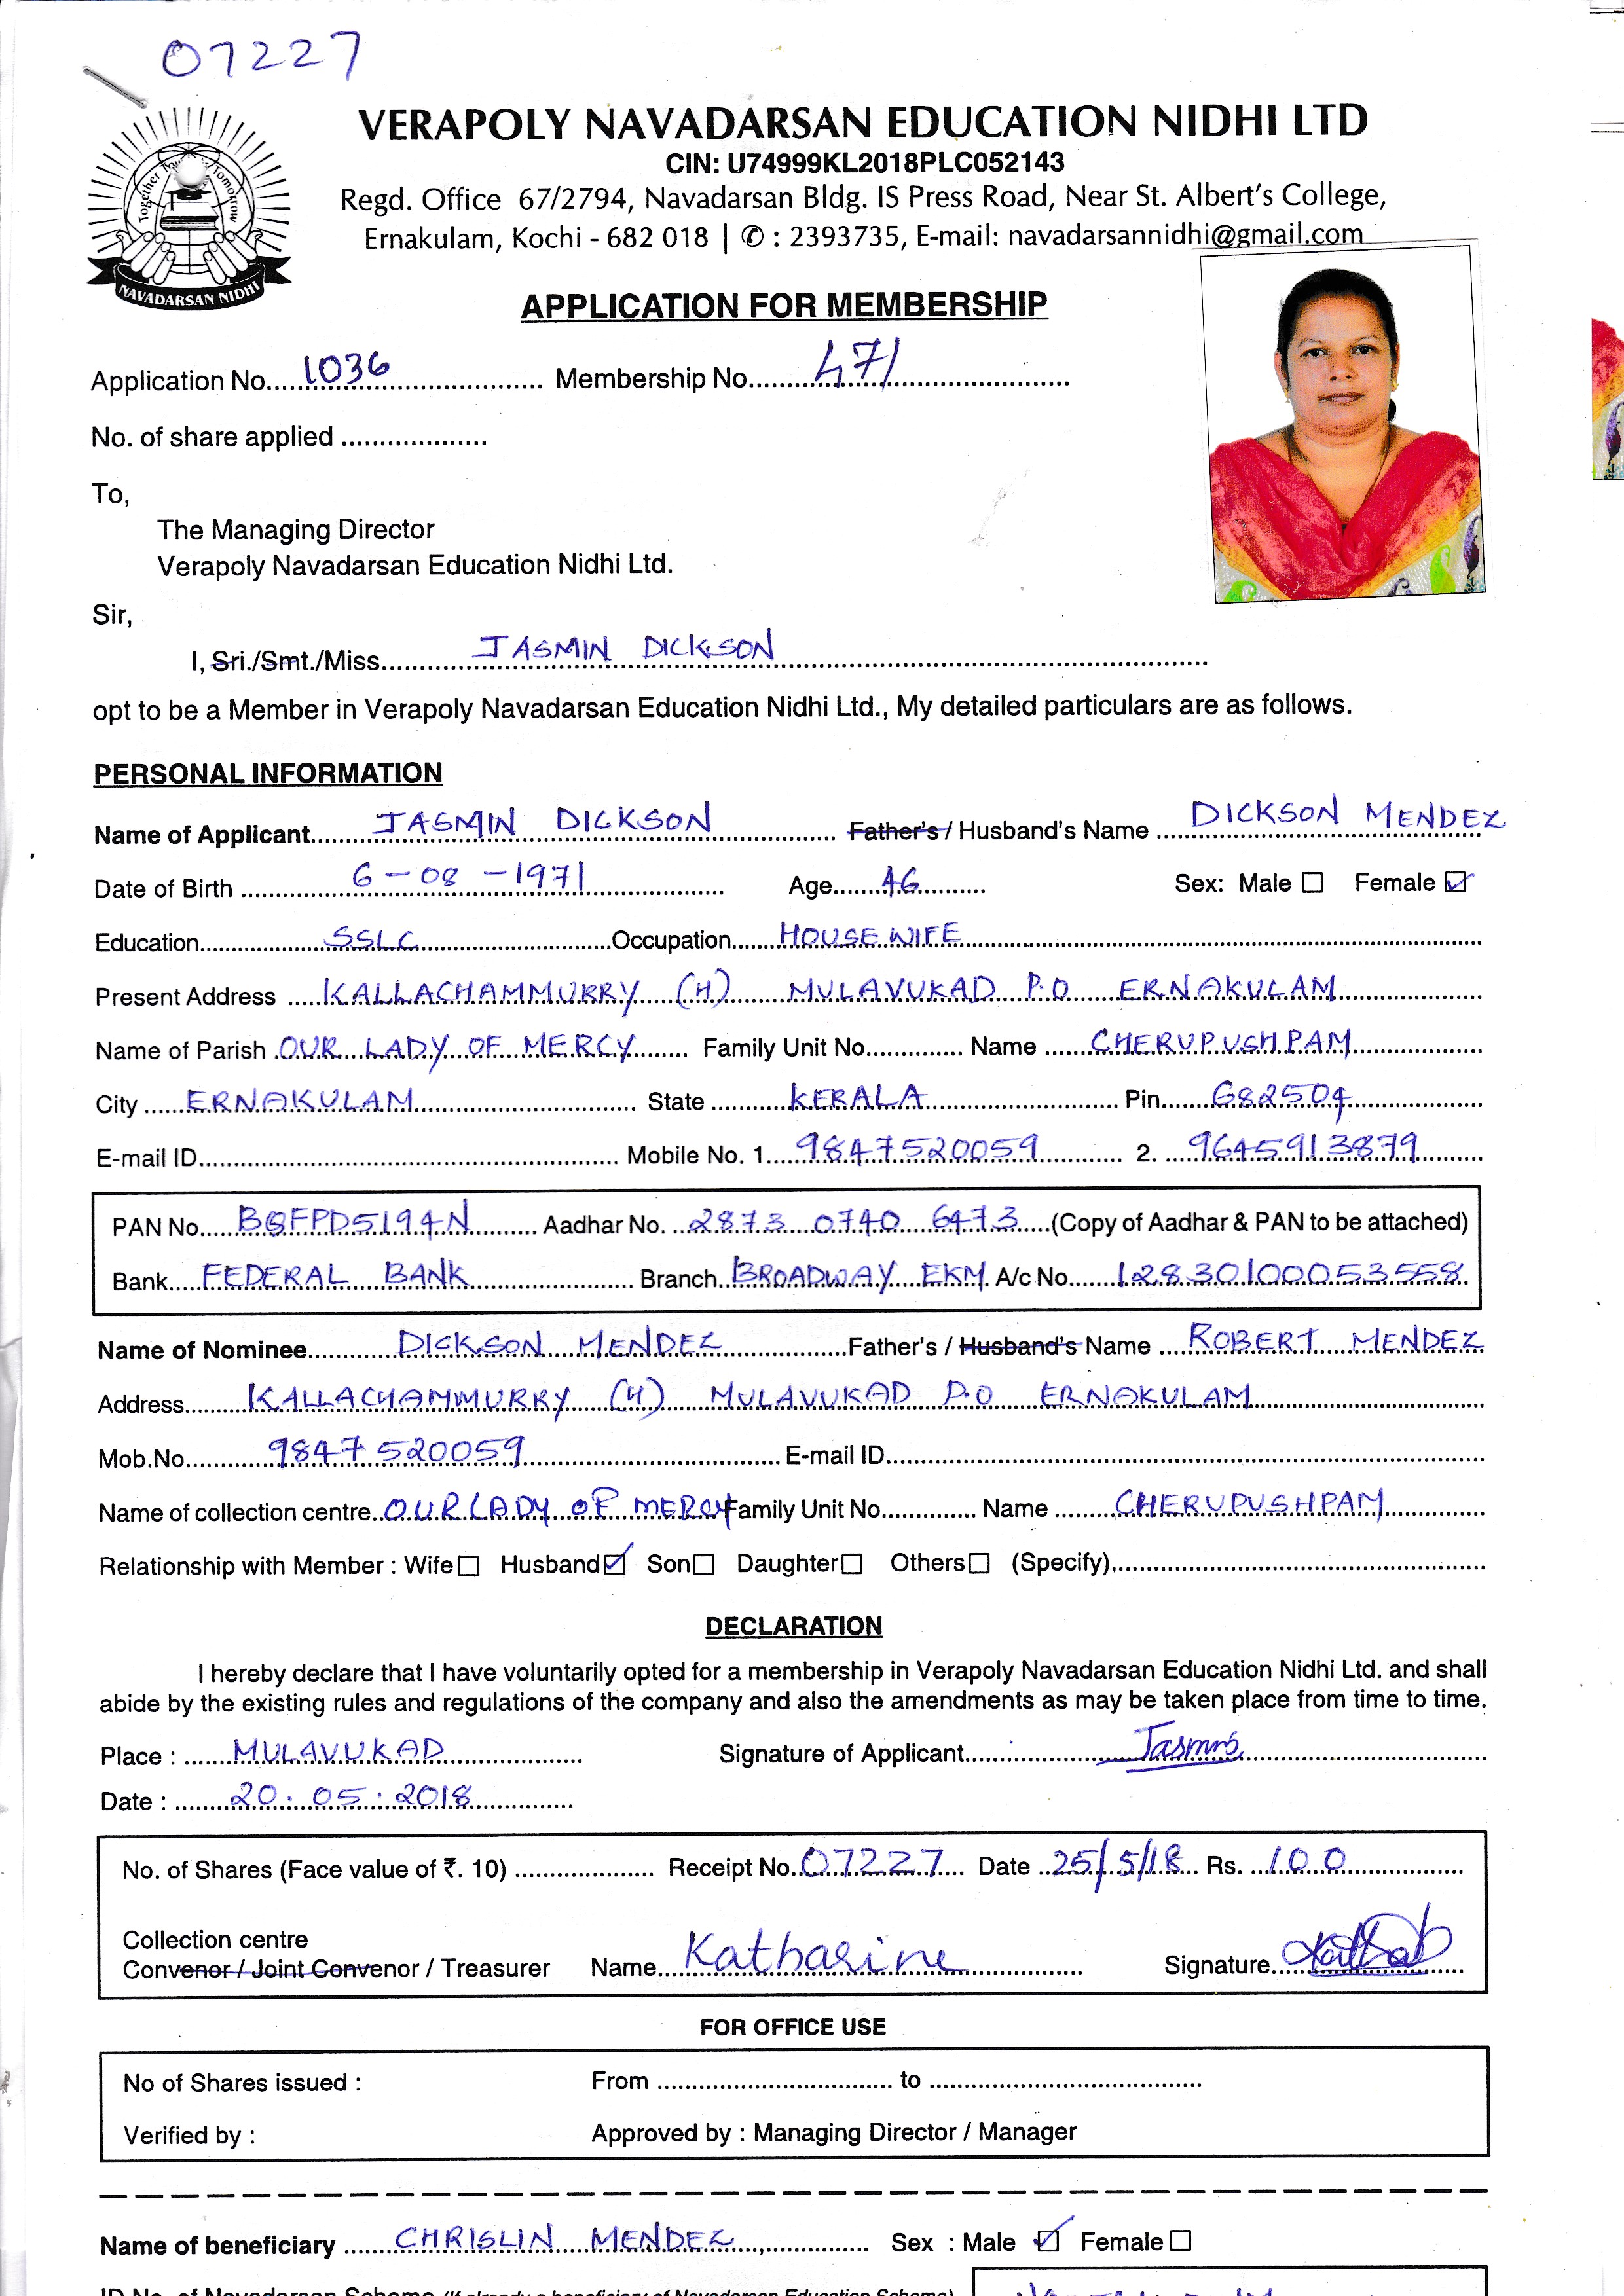 07227
VERAPOLY NAVADARSAN EDUCATION NIDHI LTD
CIN: U74999KL2018PLC052143
Regd. Office 67/2794, Navadarsan Bldg. IS Press Road, Near St. Albert's College,
Ernakulam, Kochi - 682 018 | ✆ : 2393735, E-mail: navadarsannidhi@gmail.com
Together Tomorrow
NAVADARSAN NIDHI
APPLICATION FOR MEMBERSHIP
Application No.....1036.................... Membership No.........471....................
No. of share applied ...................
To,
The Managing Director
Verapoly Navadarsan Education Nidhi Ltd.
Sir,
I, Sri./Smt./Miss............JASMIN DICKSON........................................
opt to be a Member in Verapoly Navadarsan Education Nidhi Ltd., My detailed particulars are as follows.
PERSONAL INFORMATION
Name of Applicant.......JASMIN DICKSON............ Father's / Husband's Name ....DICKSON MENDEZ
Date of Birth ............6-08-1971............ Age.......46.......... Sex: Male ☐ Female ☑
Education................SSLC....................Occupation......HOUSE WIFE..............................
Present Address ....KALLACHAMMURRY (H) MULAVUKAD P.O ERNAKULAM..............
Name of Parish .OUR LADY OF MERCY....... Family Unit No............. Name ......CHERUPUSHPAM.............
City .....ERNAKULAM.................... State .........KERALA.................... Pin.......682504.............
E-mail ID................................................ Mobile No. 1....9847520059.......... 2. ...9645913879.......
PAN No....BQFPD5194N........ Aadhar No. ..2873 0740 6473....(Copy of Aadhar & PAN to be attached)
Bank....FEDERAL BANK.................. Branch..BROADWAY EKM. A/c No......12830100053558.
Name of Nominee..........DICKSON MENDEZ..............Father's / Husband's Name ...ROBERT MENDEZ
Address........KALLACHAMMURRY (H) MULAVUKAD P.O ERNAKULAM........................
Mob.No..........9847520059.............................. E-mail ID............................................................
Name of collection centre..OUR LADY OF MERCY Family Unit No............. Name .......CHERUPUSHPAM..........
Relationship with Member : Wife☐ Husband☑ Son☐ Daughter☐ Others☐ (Specify)..............................
DECLARATION
I hereby declare that I have voluntarily opted for a membership in Verapoly Navadarsan Education Nidhi Ltd. and shall
abide by the existing rules and regulations of the company and also the amendments as may be taken place from time to time.
Place : ......MULAVUKAD.................. Signature of Applicant....................................
Date : ........20.05.2018.............
No. of Shares (Face value of ₹. 10) .................. Receipt No..07227... Date ..25/5/18.. Rs. ..100..............
Collection centre
Convenor / Joint Convenor / Treasurer Name...Katharine................ Signature..............................
FOR OFFICE USE
No of Shares issued : From .................................. to .......................................
Verified by : Approved by : Managing Director / Manager
Name of beneficiary .......CHRISLIN MENDEZ.................. Sex : Male ☑ Female ☐
ID No. of Navadarsan Scheme (If already a beneficiary of Navadarsan Education Scheme)